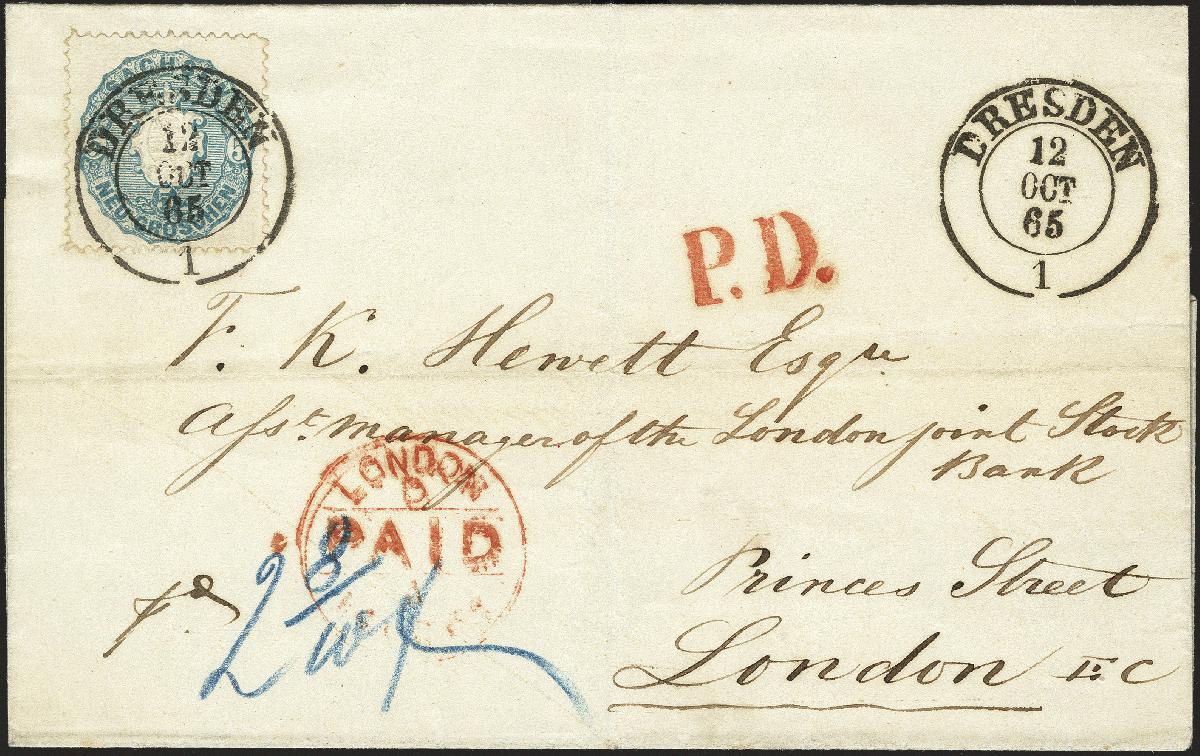 DRESDEN
12
OCT
65
1
NEU-GROSCHEN
DRESDEN
12
OCT
65
1
P.D.
F. K. Hewett Esqre
Asst. manager of the London joint Stock
Bank
LONDON
PAID
Princes Street
London E C